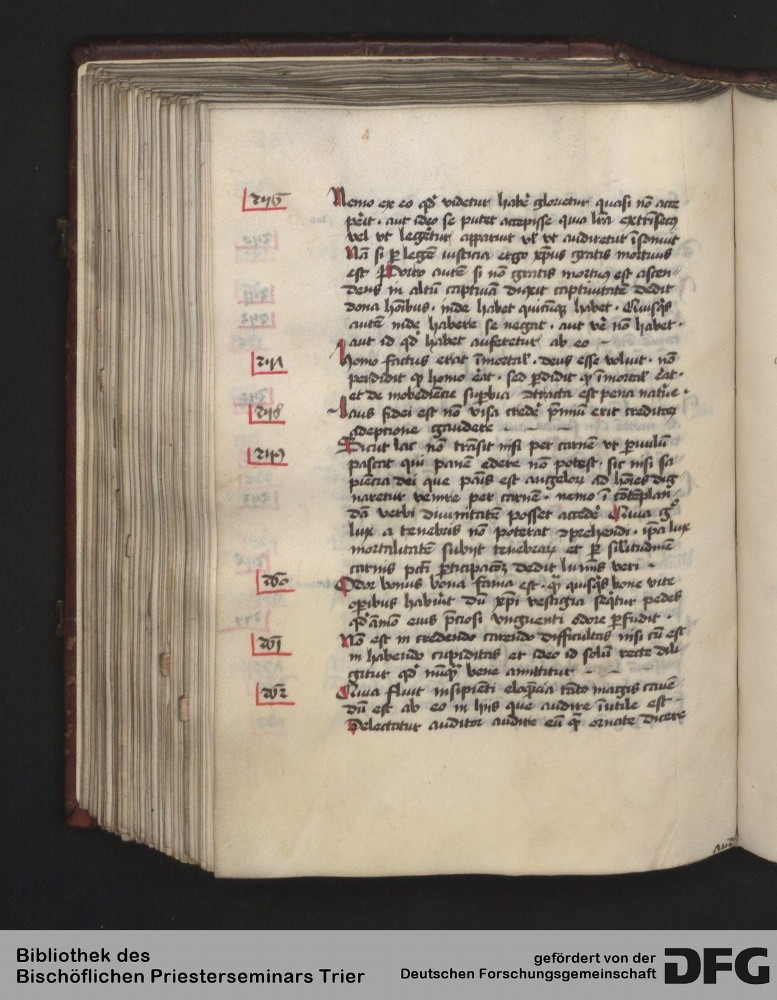 Nemo ex eo qd' videtur habe' glorietur quasi nō acce
perit · aut ideo se putet accepisse quia lr̄a extrīsecꝰ
vel vt legeretur apparuit vl' vt audiretur īsonuit
Nā si ꝑ legē iusticia ergo xp̄us gratis mortuus
est Porro autē si nō gratis mortuꝰ est ascen
dens in altū captiuā duxit captiuitatē dedit
dona hōibus · inde habet quicūqꝫ habet · Quisq̄s
autē inde habere se negat · aut ve' nō habet ·
aut id qd' habet auferetur ab eo –
Homo factus erat īmortal' · deus esse voluit · nō
perdidit qꝫ homo erat · sed ꝑdidit qꝫ īmortal' erat ·
et de inobediētie suꝑbia ꝯtracta est pena nature ·
Laus fidei est nō visa crede' p̄miū erit creditoꝝ
adeptione gaudere – – –
Sicut lac nō trāsit nisi per carnē vt ꝑuulū
pascat qui panē edere nō potest · sic nisi sa
piēcia dei que pāis est angeloꝝ ad hōines dig
naretur venire per carnē · nemo ī cōtēplan
dā verbi diuinitatē posset accede' Quia g°
lux a tenebris nō poterat ꝯprehendi · ip̄a lux
mortalitatē subijt tenebraꝝ et ꝑ sil'itudinē
carnis pcc̄i ꝑticipacōꝫ dedit luīnis veri ·
Odor bonus bona fama est · quā quisq̄s bone vite
oꝑibus habu'it dū xp̄i vestigia seq̄tur pedes
qd'āmō eius p̄ciosi vnguenti odore ꝑfudit ·
Nō est in credendo carendo difficultas nisi cū est
in habendo cupiditas et ideo id solū recte dili
gitur qd' nūqꝫ bene amittitur – –
Quia fluit insipiēti eloq̄ncia tāto magis caue
dū est ab eo in hijs que audire īutile est
Delectatur auditor audire eū qꝫ ornate dicere
Bibliothek des
Bischöflichen Priesterseminars Trier
gefördert von der
Deutschen Forschungsgemeinschaft
DFG